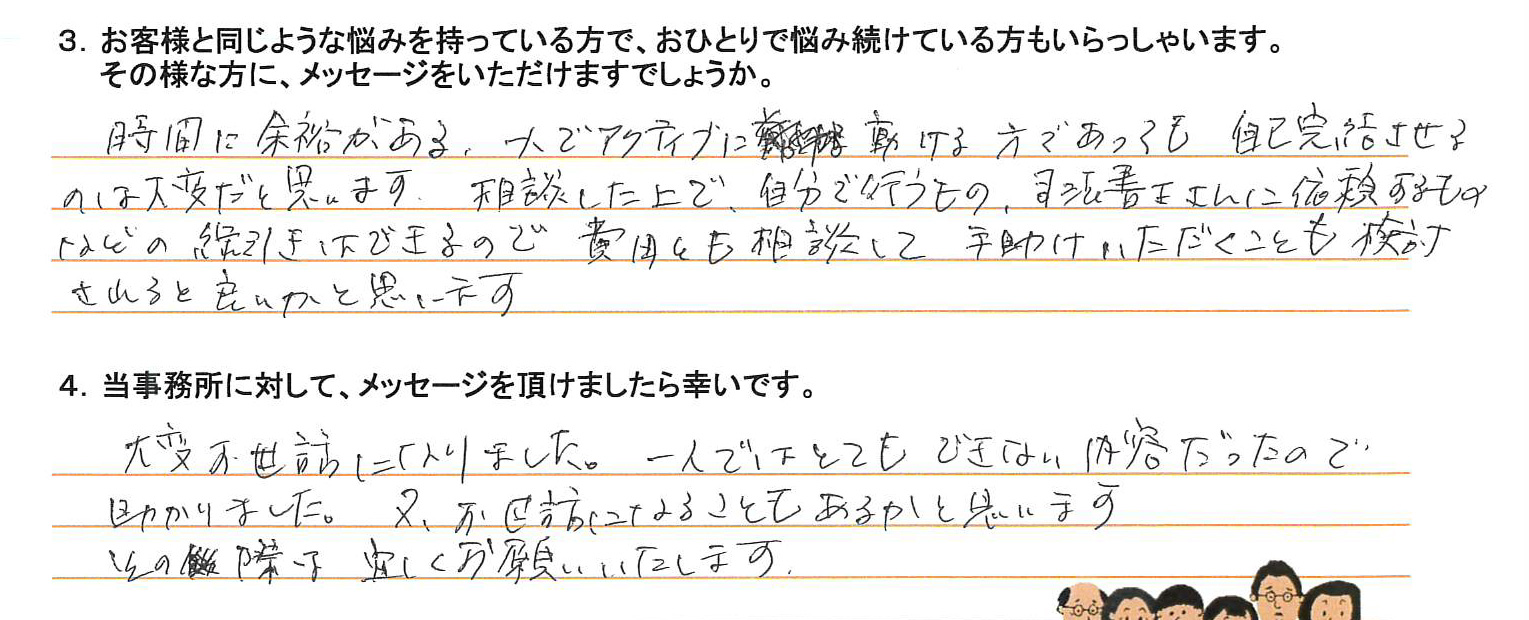 3. お客様と同じような悩みを持っている方で、おひとりで悩み続けている方もいらっしゃいます。
その様な方に、メッセージをいただけますでしょうか。
時間に余裕がある、一人でアクティブに動ける方であっても自己完結させる
のは大変だと思います。相談した上で、自分で行うもの、司法書士さんに依頼するもの
などの線引きはできるので費用とも相談して手助けいただくことも検討
されると良いかと思います
4. 当事務所に対して、メッセージを頂けましたら幸いです。
大変お世話になりました。一人ではとてもできない内容だったので
助かりました。又、お世話になることもあるかと思います
その際は宜しくお願いいたします.